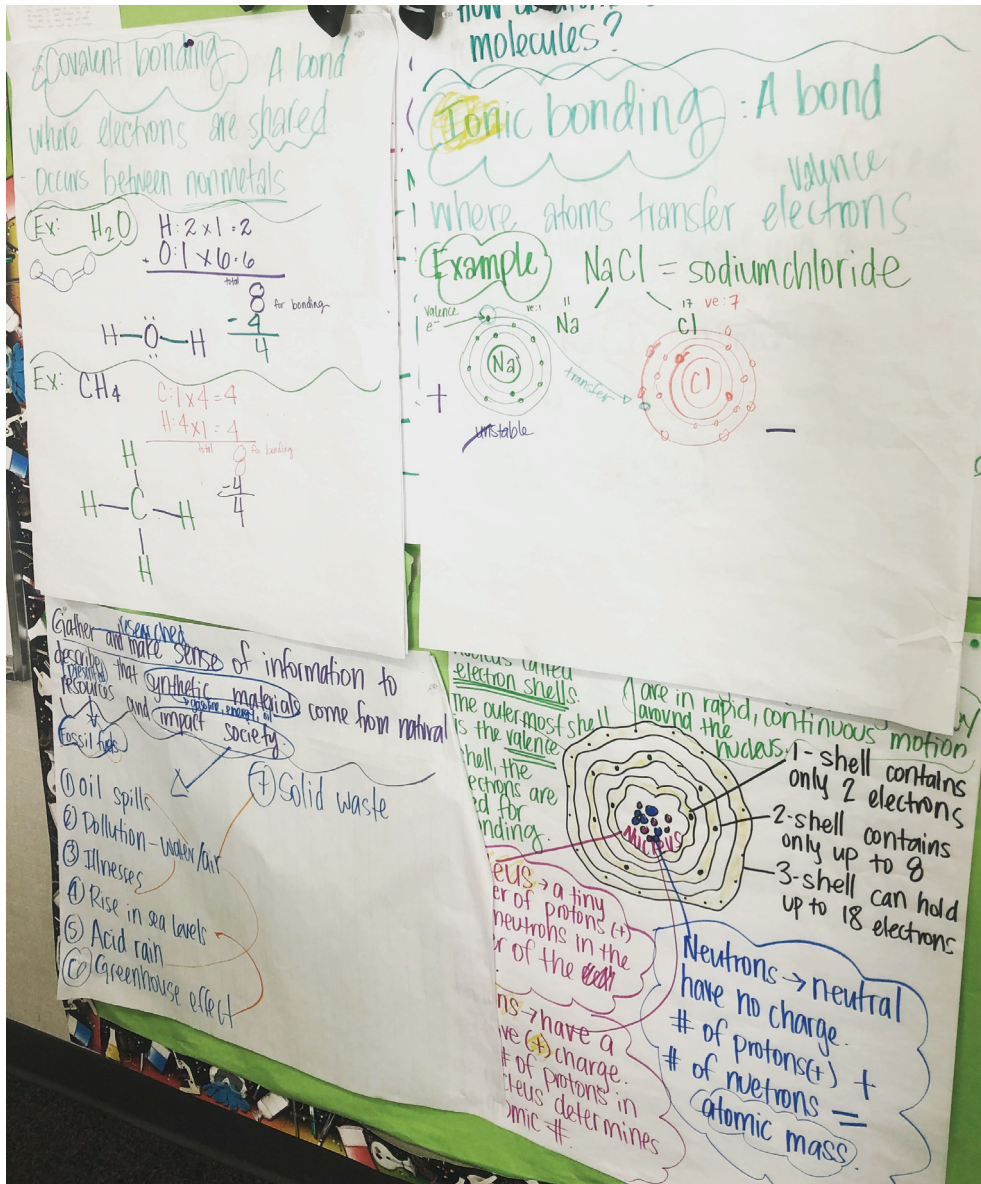 Covalent bonding A bond
where electrons are shared
- Occurs between nonmetals
Ex: H2O
H: 2 x 1 = 2
+ O: 1 x 6 = 6
total
8 for bonding
- 4
4
H—O—H
Ex: CH4
C: 1 x 4 = 4
H: 4 x 1 = 4
total
8 for bonding
- 4
4
H
H—C—H
H
molecules?
Ionic bonding : A bond
valence
where atoms transfer electrons.
Example NaCl = sodium chloride
valence e-
ve: 1
11
Na
17
Cl
ve: 7
Na
Cl
transfer
+
unstable
—
researched
Gather and make sense of information to
describe that synthetic materials come from natural
(presented)
resources and impact society.
→ gasoline, energy, oil
Fossil fuels
① oil spills
② Pollution - water/air
③ Illnesses
④ Rise in sea levels
⑤ Acid rain
⑥ Greenhouse effect
⑦ Solid waste
nucleus called
electron shells.
The outermost shell
is the valence
shell, the
for
are in rapid, continuous motion
around the
nucleus.
1-shell contains
only 2 electrons
2-shell contains
only up to 8
3-shell can hold
up to 18 electrons
NUCLEUS
→ a tiny
of protons (+)
neutrons in the
of the
→ have a
(+) charge.
# of protons in
determines
#.
Neutrons → neutral
have no charge.
# of protons(+) +
# of nuetrons =
atomic mass.